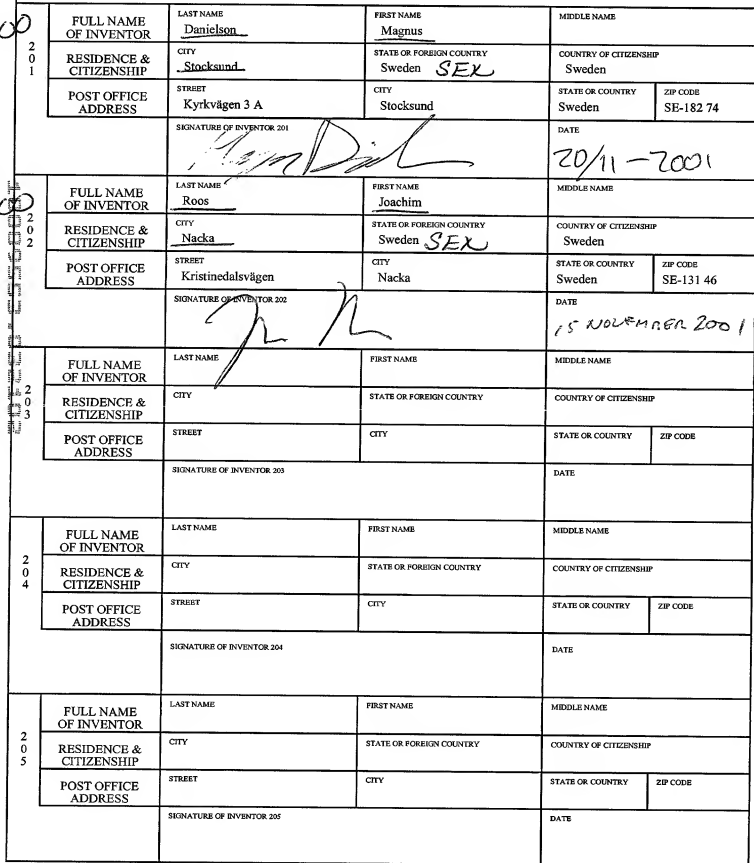 FULL NAME OF INVENTOR
LAST NAME Danielson
FIRST NAME Magnus
MIDDLE NAME
201
RESIDENCE & CITIZENSHIP
CITY Stocksund
STATE OR FOREIGN COUNTRY Sweden SEX
COUNTRY OF CITIZENSHIP Sweden
POST OFFICE ADDRESS
STREET Kyrkvägen 3 A
CITY Stocksund
STATE OR COUNTRY Sweden
ZIP CODE SE-182 74
SIGNATURE OF INVENTOR 201
DATE 20/11 - 2001
FULL NAME OF INVENTOR
LAST NAME Roos
FIRST NAME Joachim
MIDDLE NAME
202
RESIDENCE & CITIZENSHIP
CITY Nacka
STATE OR FOREIGN COUNTRY Sweden SEX
COUNTRY OF CITIZENSHIP Sweden
POST OFFICE ADDRESS
STREET Kristinedalsvägen
CITY Nacka
STATE OR COUNTRY Sweden
ZIP CODE SE-131 46
SIGNATURE OF INVENTOR 202
DATE 15 NOVEMBER 2001
FULL NAME OF INVENTOR
LAST NAME
FIRST NAME
MIDDLE NAME
203
RESIDENCE & CITIZENSHIP
CITY
STATE OR FOREIGN COUNTRY
COUNTRY OF CITIZENSHIP
POST OFFICE ADDRESS
STREET
CITY
STATE OR COUNTRY
ZIP CODE
SIGNATURE OF INVENTOR 203
DATE
FULL NAME OF INVENTOR
LAST NAME
FIRST NAME
MIDDLE NAME
204
RESIDENCE & CITIZENSHIP
CITY
STATE OR FOREIGN COUNTRY
COUNTRY OF CITIZENSHIP
POST OFFICE ADDRESS
STREET
CITY
STATE OR COUNTRY
ZIP CODE
SIGNATURE OF INVENTOR 204
DATE
FULL NAME OF INVENTOR
LAST NAME
FIRST NAME
MIDDLE NAME
205
RESIDENCE & CITIZENSHIP
CITY
STATE OR FOREIGN COUNTRY
COUNTRY OF CITIZENSHIP
POST OFFICE ADDRESS
STREET
CITY
STATE OR COUNTRY
ZIP CODE
SIGNATURE OF INVENTOR 205
DATE